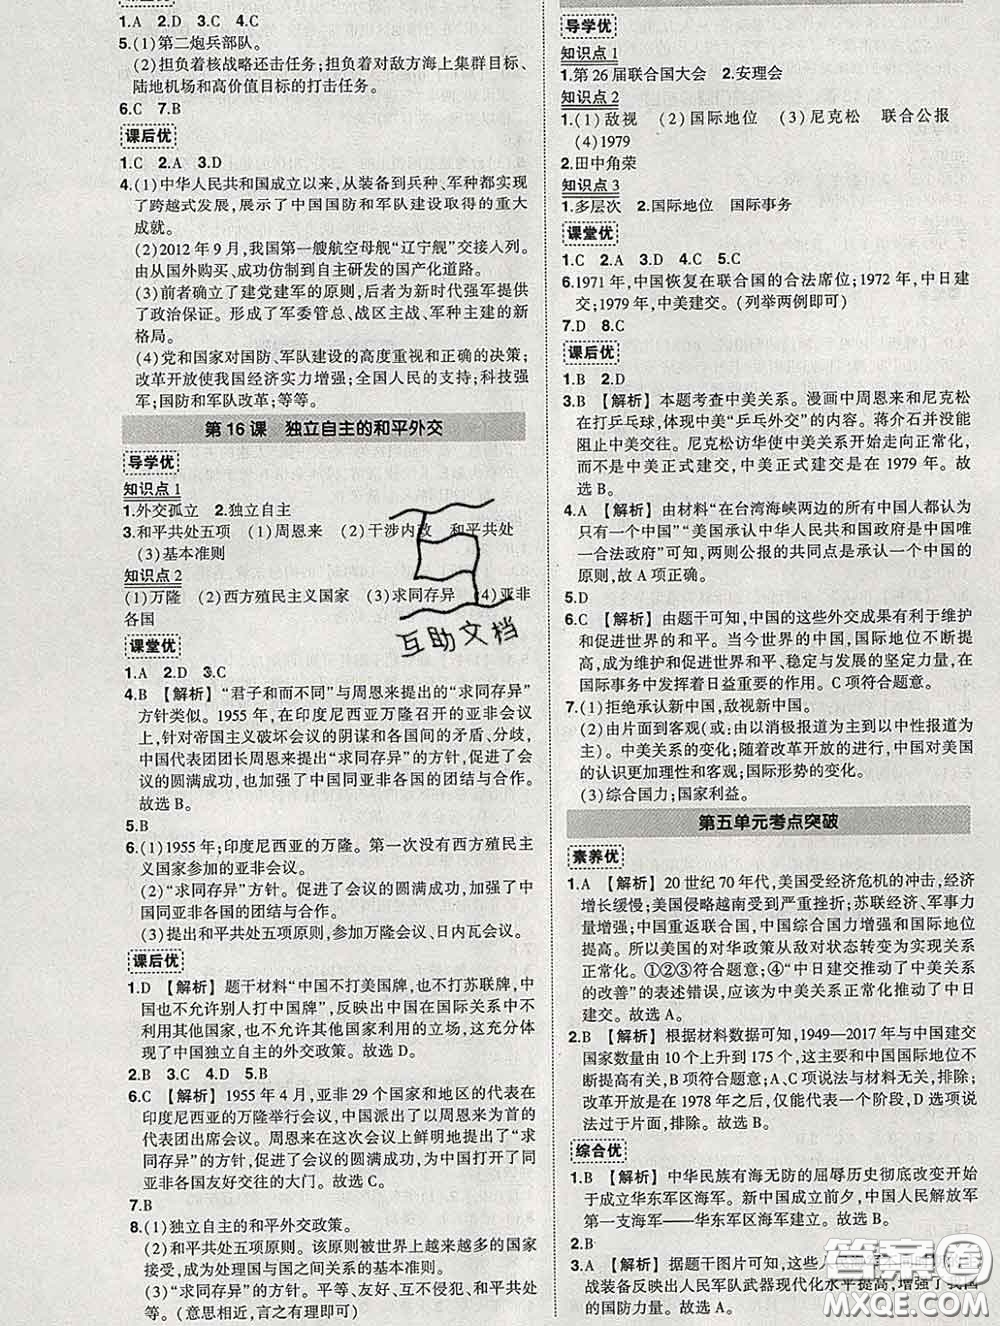 课堂优
1.A 2.D 3.C 4.C
5.(1)第二炮兵部队。
(2)担负着核战略还击任务;担负着对敌方海上集群目标、
陆地机场和高价值目标的打击任务。
6.C 7.B
课后优
1.C 2.A 3.D
4.(1)中华人民共和国成立以来,从装备到兵种、军种都实现
了跨越式发展,展示了中国国防和军队建设取得的重大
成就。
(2)2012年9月,我国第一艘航空母舰“辽宁舰”交接入列。
由从国外购买、成功仿制到自主研发的国产化道路。
(3)前者确立了建党建军的原则,后者为新时代强军提供
了政治保证。形成了军委管总、战区主战、军种主建的新
格局。
(4)党和国家对国防、军队建设的高度重视和正确的决策;
改革开放使我国经济实力增强;全国人民的支持;科技强
军;国防和军队改革;等等。
第16课 独立自主的和平外交
导学优
知识点1
1.外交孤立 2.独立自主
3.和平共处五项 (1)周恩来 (2)干涉内政 和平共处
(3)基本准则
知识点2
(1)万隆 (2)西方殖民主义国家 (3)求同存异 (4)亚非
各国
课堂优
1.A 2.D 3.C
4.B 【解析】“君子和而不同”与周恩来提出的“求同存异”
方针类似。1955年,在印度尼西亚万隆召开的亚非会议
上,针对帝国主义破坏会议的阴谋和各国间的矛盾、分歧,
中国代表团团长周恩来提出“求同存异”的方针,促进了会
议的圆满成功,也加强了中国同亚非各国的团结与合作。
故选B。
5.B
6.(1)1955年;印度尼西亚的万隆。第一次没有西方殖民主
义国家参加的亚非会议。
(2)“求同存异”方针。促进了会议的圆满成功,加强了中
国同亚非各国的团结与合作。
(3)提出和平共处五项原则,参加万隆会议、日内瓦会议。
课后优
1.D 【解析】题干材料“中国不打美国牌,也不打苏联牌,中
国也不允许别人打中国牌”,反映出中国在国际关系中不
依附其他国家,也不允许其他国家利用的立场,这充分体
现了中国独立自主的外交政策。故选D。
2.B 3.C 4.B 5.B
6.C 【解析】1955年4月,亚非29个国家和地区的代表在
印度尼西亚的万隆举行会议,中国派出了以周恩来为首的
代表团出席会议。周恩来在这次会议上鲜明地提出了“求
同存异”的方针,促进了会议的圆满成功,促进了中国同亚
非各国友好交往的大门。故选C。
7.B
8.(1)独立自主的和平外交政策。
(2)和平共处五项原则。该原则被世界上越来越多的国家
接受,成为处理国与国之间关系的基本准则。
(3)“求同存异”的方针。平等、友好、交流、和平共处等
等。(意思相近,言之有理即可)
导学优
知识点1
1.第26届联合国大会 2.安理会
知识点2
1.(1)敌视 (2)国际地位 (3)尼克松 联合公报
(4)1979
2.田中角荣
知识点3
1.多层次 2.国际地位 国际事务
课堂优
1.C 2.A 3.C 4.A 5.C
6.1971年,中国恢复在联合国的合法席位;1972年,中日建
交;1979年,中美建交。(列举两例即可)
7.D 8.C
课后优
1.B 2.D
3.B 【解析】本题考查中美关系。漫画中周恩来和尼克松
在打乒乓球,体现中美“乒乓外交”的内容。蒋介石并没能
阻止中美交往。尼克松访华使中美关系开始走向正常化,
而不是中美正式建交,中美正式建交是在1979年。故
选B。
4.A 【解析】由材料“在台湾海峡两边的所有中国人都认为
只有一个中国”“美国承认中华人民共和国政府是中国唯
一合法政府”可知,两则公报的共同点是承认一个中国的
原则,故A项正确。
5.D
6.C 【解析】由题干可知,中国的这些外交成果有利于维护
和促进世界的和平。当今世界的中国,国际地位不断提
高,成为维护和促进世界和平、稳定与发展的坚定力量,在
国际事务中发挥着日益重要的作用。C项符合题意。
7.(1)拒绝承认新中国,敌视新中国。
(2)由片面到客观(或:由以消极报道为主到以中性报道为
主)。中美关系的变化;随着改革开放的进行,中国对美国
的认识更加理性和客观;国际形势的变化。
(3)综合国力;国家利益。
第五单元考点突破
素养优
1.A 【解析】20世纪70年代,美国受经济危机的冲击,经济
增长缓慢;美国侵略越南受到严重挫折;苏联经济、军事力
量增强;中国重返联合国,中国综合国力增强和国际地位
提高。所以美国的对华政策从敌对状态转变为实现关系
正常化。①②③符合题意;④“中日建交推动了中美关系
的改善”的表述错误,应该为中美关系正常化推动了中日
建交。故选A。
2.B 【解析】根据材料数据可知,1949—2017年与中国建交
国家数量由10个上升到175个,这主要和中国国际地位不
断提高有关,B项符合题意;A、C项说法与材料无关,排除;
改革开放是在1978年之后,仅能代表一个阶段,D选项说
法过于片面,排除。故选B。
综合优
1.A 【解析】中华民族有海无防的屈辱历史彻底改变开始
于成立华东军区海军。新中国成立前夕,中国人民解放军
第一支海军——华东军区海军建立。故选A。
2.B
3.A 【解析】据题干图片可知,这些人
战装备反映出人民军队武器现代化水平提高,增强了我国
的国防力量。故选A。
互助文档
答案圈
MXQE.COM